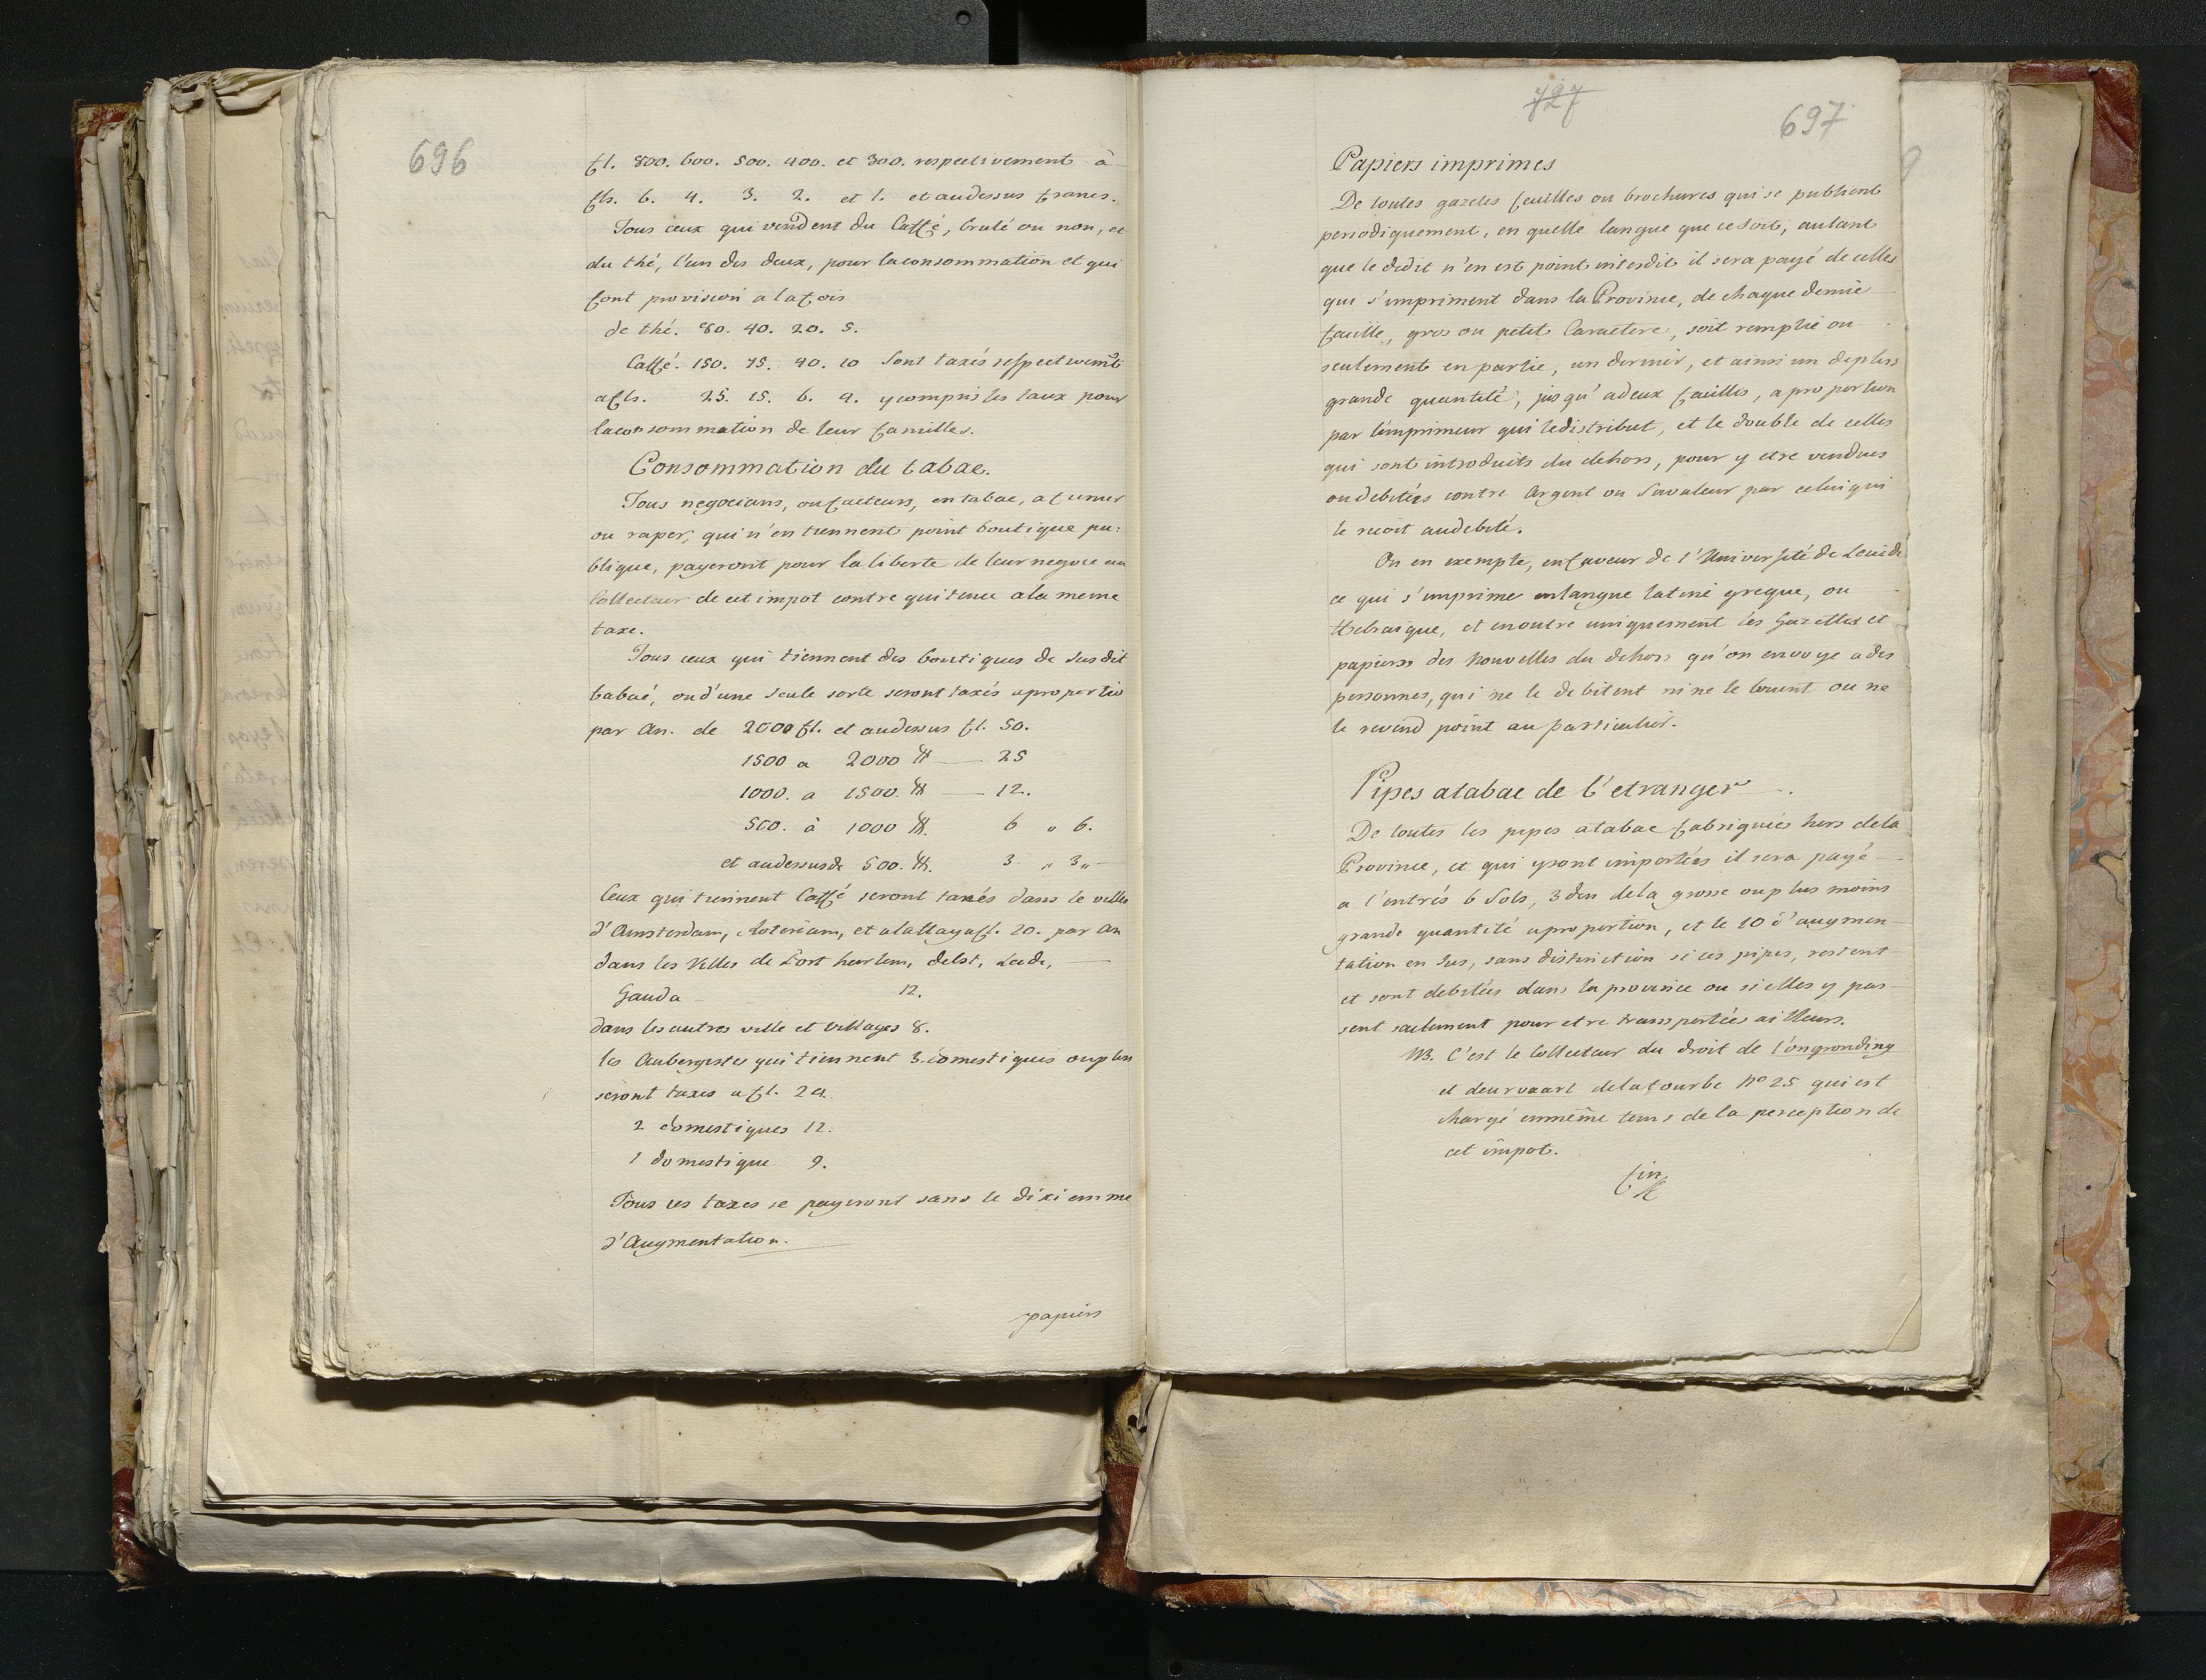 696
fl. 800. 600. 500. 400. et 300. respectivement à
fls. 6. 4. 3. 2. et 1. et audessus francs.
Tous ceux qui vendent du Caffé, brulé ou non, et
du thé, l'un des deux, pour laconsommation et qui
font provision alafois
de thé. 80. 40. 20. 5.
Caffé. 150. 75. 40. 10 sont taxés respectivemt
afls. 25. 15. 6. 4. ycompris les taux pour
laconsommation de leur familles.
Consommation du tabac.
Tous negocians, oufacteurs, en tabac, afumer
ou raper, qui n'en tiennent point boutique pu:
blique, payeront pour la liberte de leur negoce au
Collecteur de cet impot contre quitence ala meme
taxe.
Tous ceux qui tiennent des boutiques de susdit
tabac, oud'une seule sorte seront taxés aproportio
par An. de 2000 fl. et audessus fl. 50.
1500 a 2000 ℔ — 25
1000. a 1500. ℔ — 12.
500. à 1000 ℔. 6 " 6.
et audessusde 500. ℔. 3 " 3 "
Ceux qui tiennent Caffé seront taxés dans le villes
d'Amsterdam, Roterdam, et alaHayafl. 20. par An
dans les Villes de Dort harlem, delst, Leide, —
Gauda — 12.
dans les autres ville et villages 8.
les Aubergistes qui tiennent 3 domestiques ouplus
seront taxes a fl. 24.
2 domestiques 12.
1 domestique 9.
Tous ces taxes se payeront sans le dixiemme
d'Augmentation.
papiers
727
697
Papiers imprimes
De toutes gazetes feuilles ou brochures qui se publient
periodiquement, en quelle langue que ce soit, autant
que le debit n'en est point interdit il sera payé de celles
qui s'impriment dans la Province, de chaque demie
feuille, gros ou petit Caractere, soit remplie ou
seulement en partie, un dernier, et ainsi un deplus
grande quantité, jusqu'adeux feuilles, aproportion
par l'imprimeur qui ledistribut, et le double de celles
qui sont introduits du dehors, pour y etre vendues
oudebitées contre Argent ou Savaleur par celuiqui
le recoit audebité.
On en exempte, enfaveur de l'Université de Leiide
ce qui s'imprime enlangue latine greque, ou
Hebraique, et enoutre uniquement les Gazettes et
papiers des Nouvelles du dehors qu'on envoye ades
personnes, qui ne le debitent ni ne le louent ou ne
le revend point au particulier.
Pipes atabac de l'etranger —.
De toutes les pipes atabac fabriquées hors dela
Province, et qui ysont importées il sera payé
a l'entrés 6 Sols, 3 den dela grosse ouplus moins
grande quantité aproportion, et le 10 d'augmen
tation en Sus, sans distinction si ces pipes, restent
et sont debitées dans la province ou si elles y pas
sent seulement pour etre transportées ailleurs.
NB. C'est le Collecteur du droit de l'ongronding
et deurvaart delatourbe No 25 qui est
chargé enmême tems de la perception de
cet impot.
fin